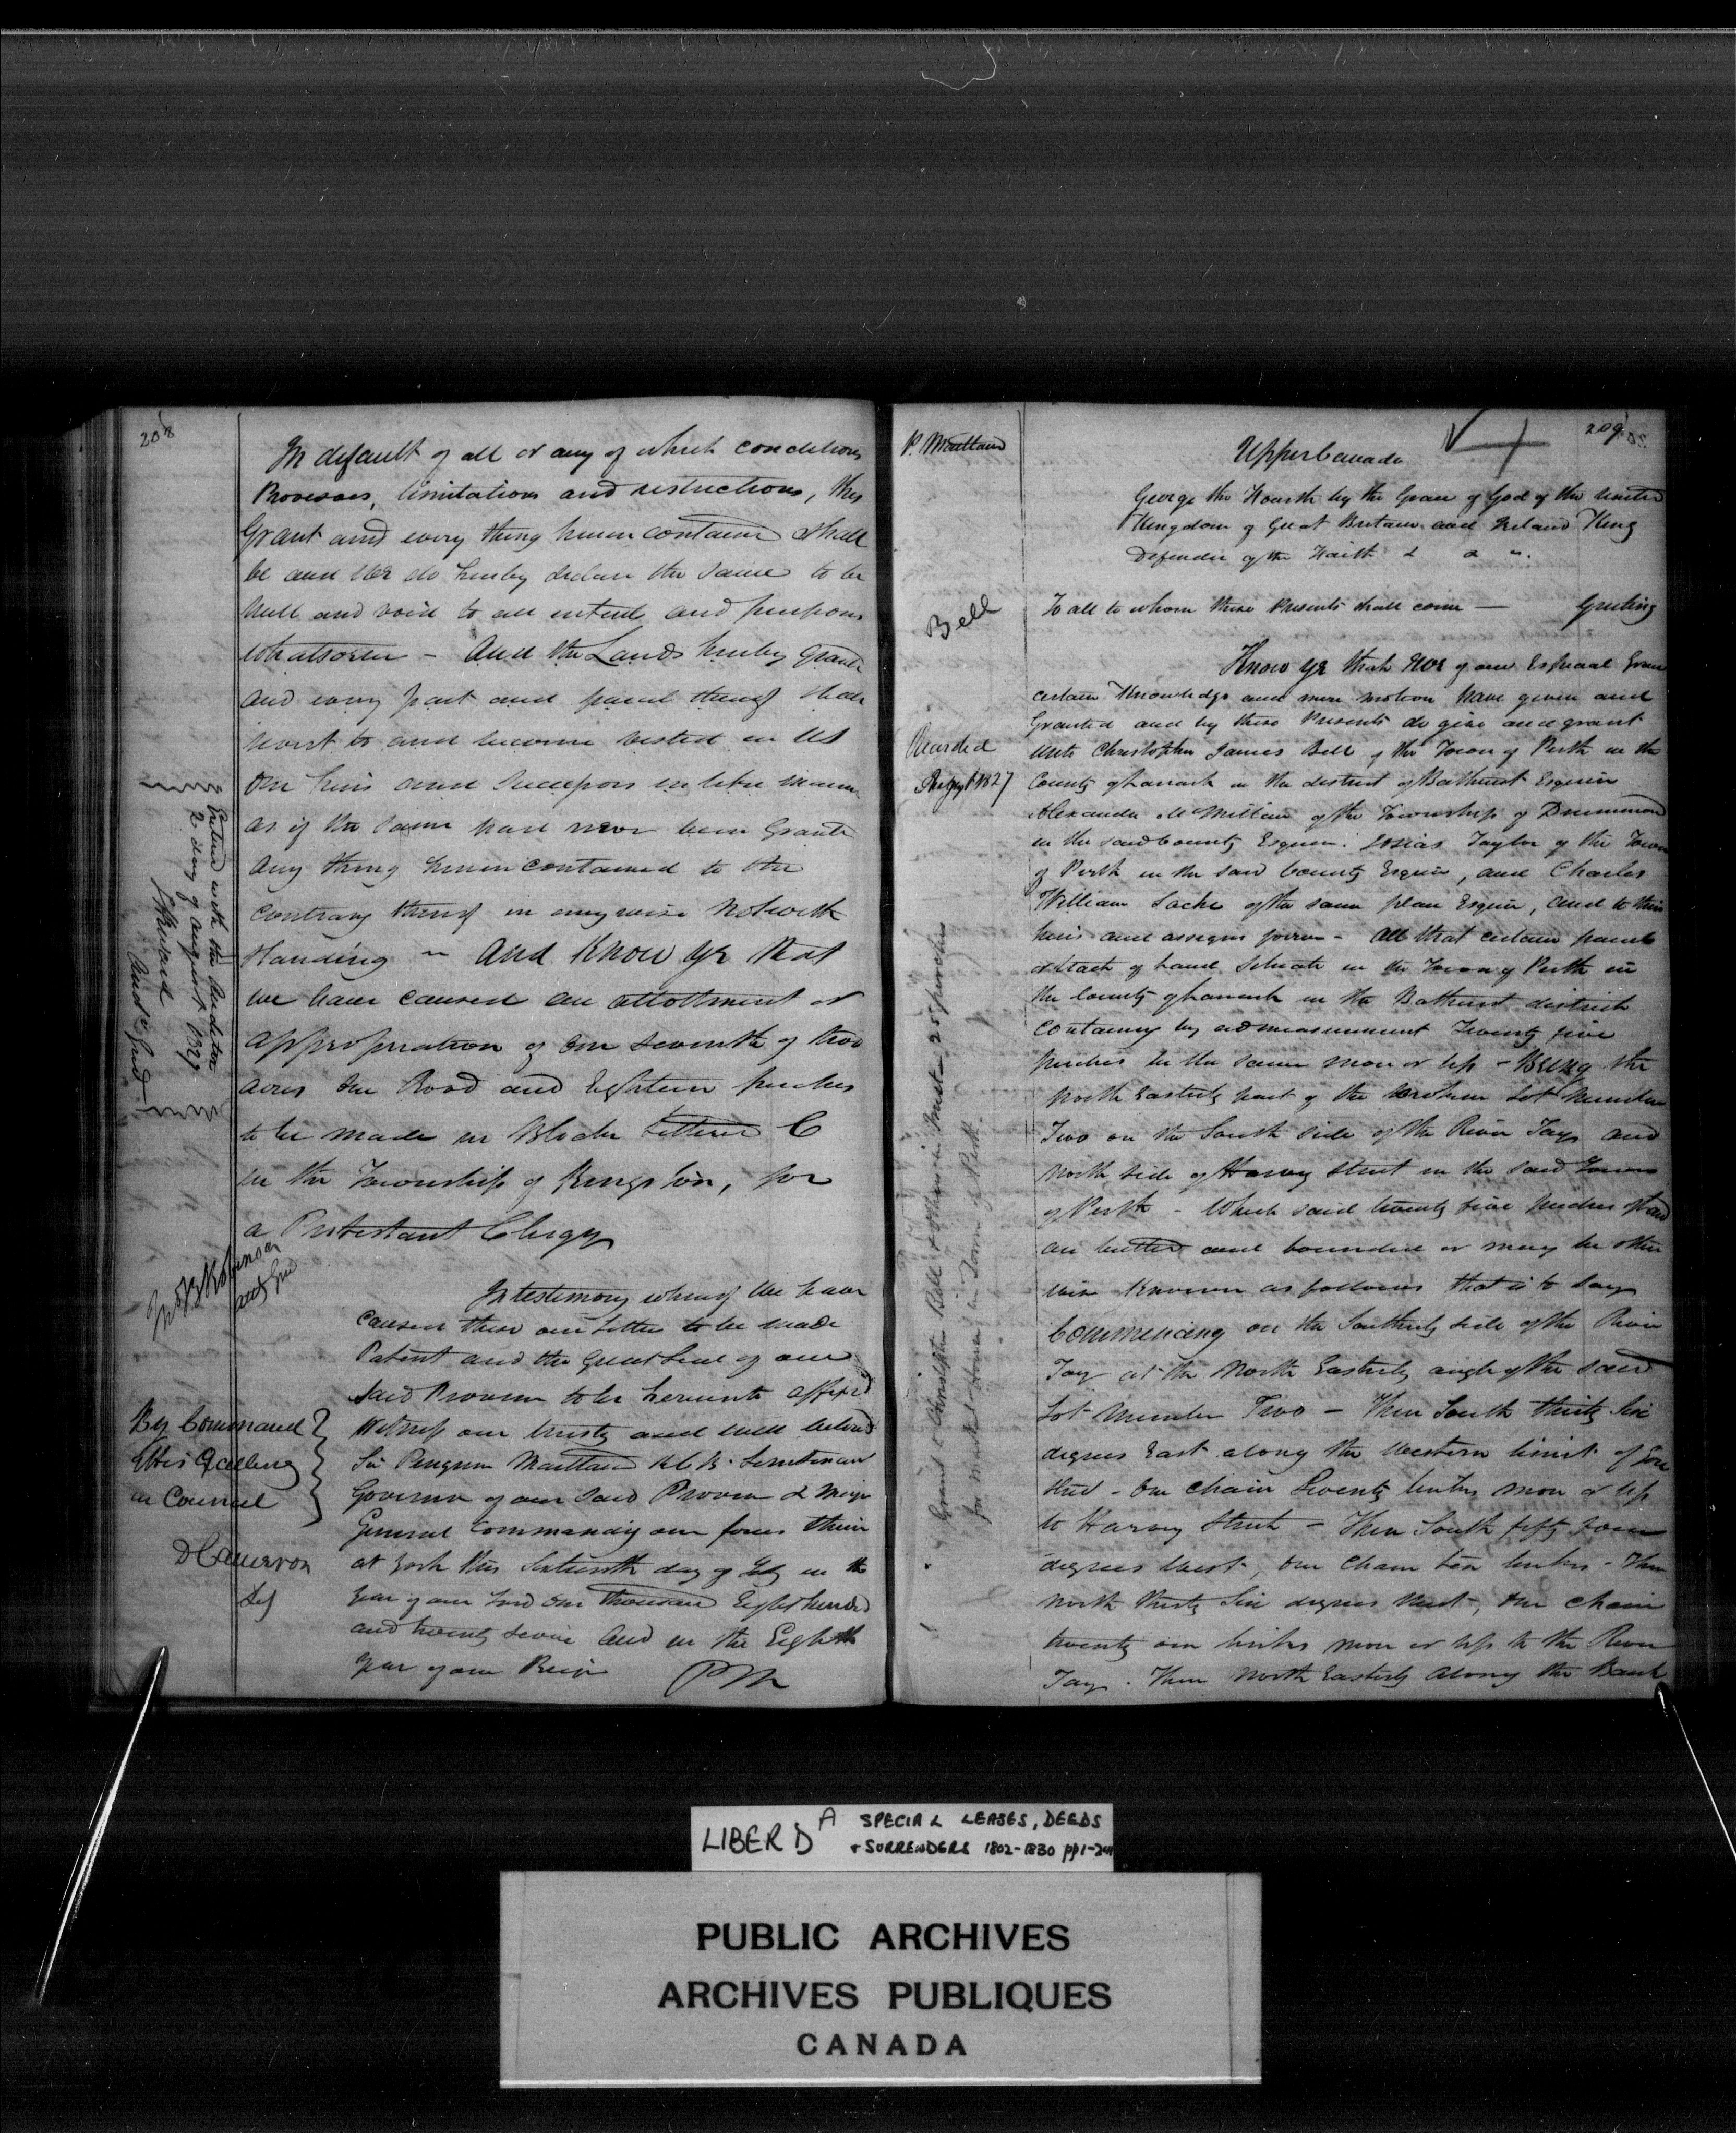 208
In default of all or any of which conditions
Provisoes, limitations and restrictions, this
Grant and every thing herein contained shall
be and We do hereby declare the same to be
null and void to all intents and purposes
whatsoever - And the Lands hereby granted
and every part and parcel thereof shall
revert to and become vested in Us
Our heirs and Successors in like manner
as if the same had never been Granted
any thing herein contained to the
contrary thereof in any wise Notwith
standing ~ And Know Ye that
we have caused an allotment or
appropriation of One seventh of two
acres One Rood and Eighteen perches
to be made in Block Lettered C
in the Township of Kingston, for
a Protestant Clergy
In testimony whereof We have
caused these our Letters to be made
Patent and the Great Seal of our
said Province to be hereunto affixed
Witness our trusty and well beloved
Sir Peregrine Maitland K.C.B. Lieutenant
Governor of our said Province & Major
General Commanding our forces therein
at York this Sixteenth day of July in the
year of our Lord One thousand Eight hundred
and twenty seven And in the Eighth
year of our Reign PM
Entered with the Auditor
2 day of August 1827
Audr Genl
Jno B Robinson
Atty Gen
By Command
of His Excellency
in Council
D Cameron
Sey
P. Maitland
209
Upper Canada
George the Fourth by the Grace of God of the United
Kingdom of Great Britain and Ireland King
Defender of the Faith & &
Bell
To all to whom these Presents shall come — Greeting
Know Ye that We of our Especial Grace
certain Knowledge and mere motion have given and
Granted and by these Presents do give and grant
unto Christopher James Bell of the Town of Perth in the
County of Lanark in the district of Bathurst Esquire
Alexander McMillan of the Township of Drummond
in the said County Esquire. Josias Taylor of the Town
of Perth in the said County Esquire, and Charles
William Sache of the same place Esquire, and to their
heirs and assigns forever - All that certain parcel
or tract of Land Situate in the Town of Perth in
the County of Lanark in the Bathurst district
Containing by admeasurement Twenty five
perches be the same more or less - Being the
North Easterly part of the Lot Number
Two on the South side of the River Tay and
North side of Harvey Street in the said Town
of Perth - Which said twenty five perches of Land
are butted and bounded or may be other
wise Known as follows that is to say
Commencing on the Southerly side of the River
Tay at the North Easterly angle of the said
Lot Number Two - Then South thirty Six
degrees East along the Western limit of Gore
Street - One chain Seventy links more or less
to Harvey Street - Then South fifty four
degrees West, One Chain ten links - Then
North thirty Six degrees West, One Chain
twenty one links more or less to the River
Tay. Then North Easterly Along the Bank
Recorded
Augt 1827
Grant to Christopher Bell & others in trust - 25 perches
for market House, in Town of Perth.
LIBER D A SPECIAL LEASES, DEEDS
+ SURRENDERS 1802-1830
PUBLIC ARCHIVES
ARCHIVES PUBLIQUES
CANADA